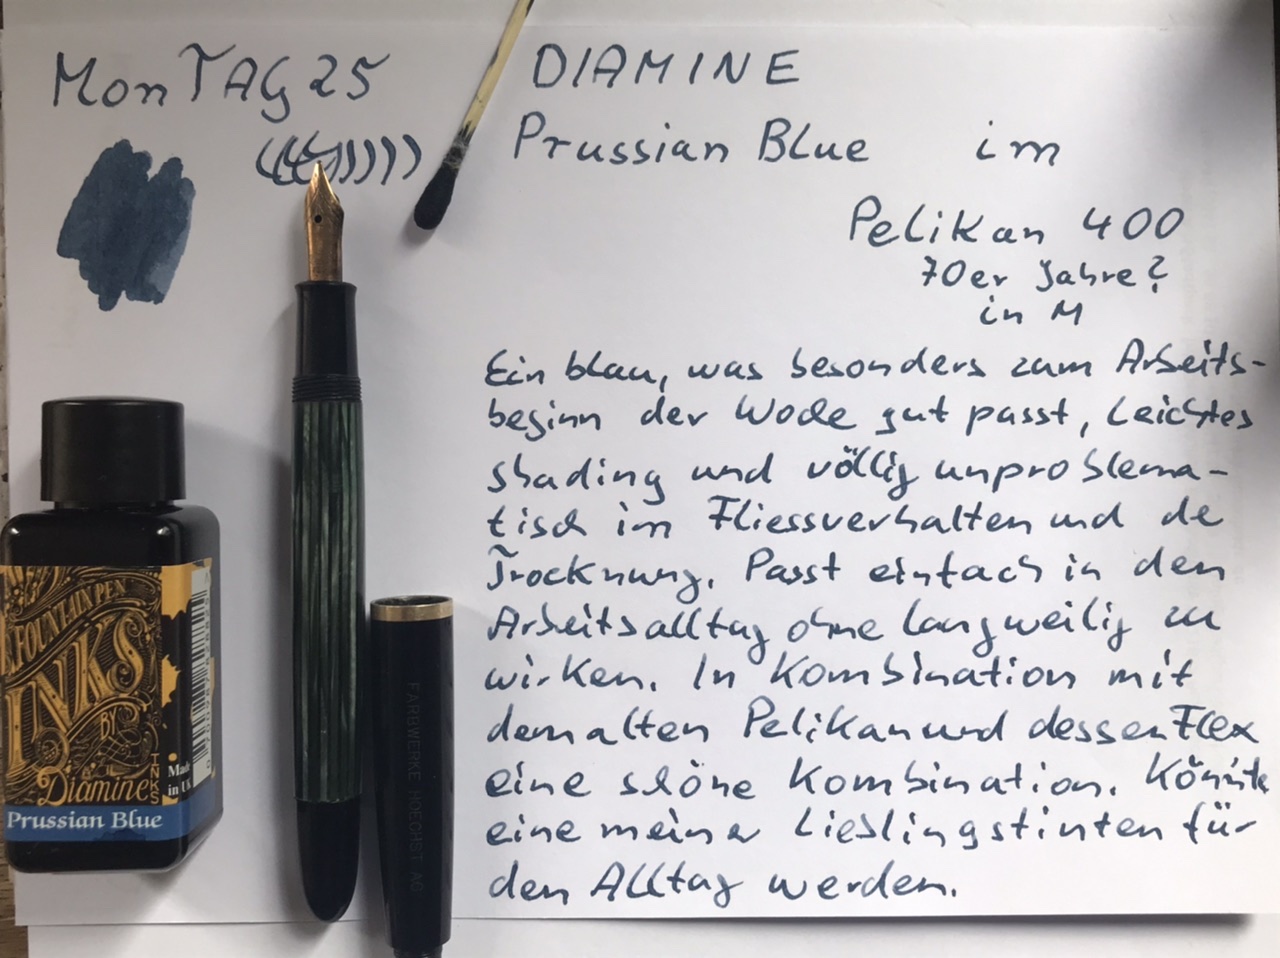 MonTAG 25
DIAMINE
Prussian Blue im
Pelikan 400
70er Jahre?
in M
Ein blau, was besonders zum Arbeits-
beginn der Woche gut passt, Leichtes
shading und völlig unproblema-
tisch im Fliessverhalten und de
Trocknung. Passt einfach in den
Arbeitsalltag ohne langweilig zu
wirken. In Kombination mit
dem alten Pelikan und dessen Flex
eine schöne Kombination. Könnte
eine meiner Lieblingstinten für
den Alltag werden.
FOUNTAIN PEN
INKS
BY
Diamine
INKS
Made
in UK
Prussian Blue
FARBWERKE HOECHST AG